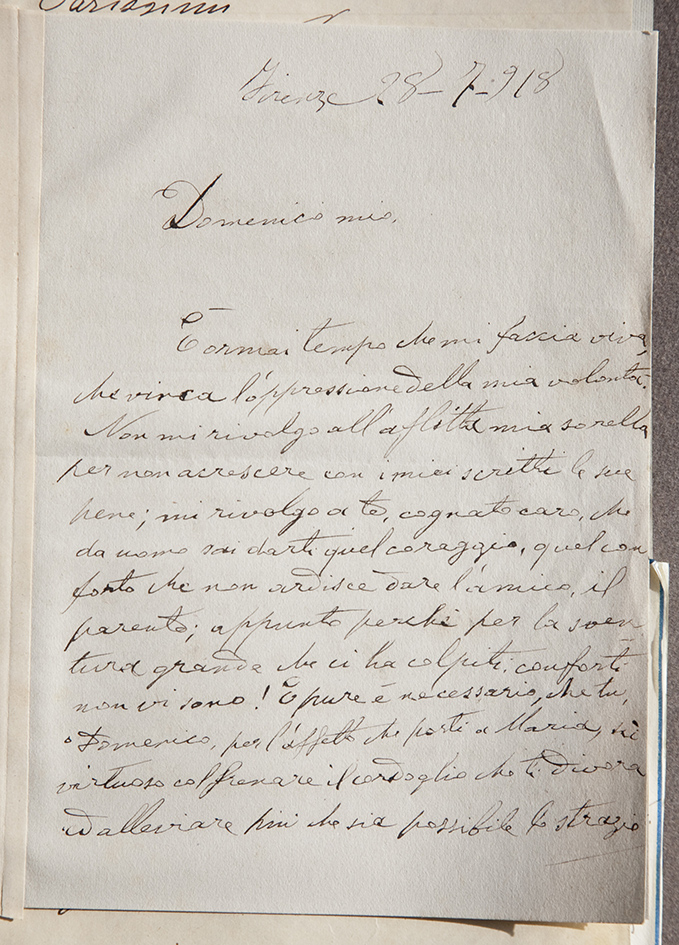 Firenze 28-7-918
Domenico mio,
È ormai tempo che mi faccia viva,
che vinca l'oppressione della mia volontà.
Non mi rivolgo all'aflitta mia sorella
per non acrescere con i miei scritti le sue
pene; mi rivolgo a te, cognato caro, che
da uomo sai darti quel coraggio, quel con
forto che non ardisce dare l'amico, il
parente; appunto perchè per la sven
tura grande che ci ha colpiti, conforti
non vi sono! Epure è necessario, che tu,
o Domenico, per l'affetto che porti a Maria, sii
virtuoso col frenare il cordoglio che ti divora
ed alleviare più che sia possibile lo strazio